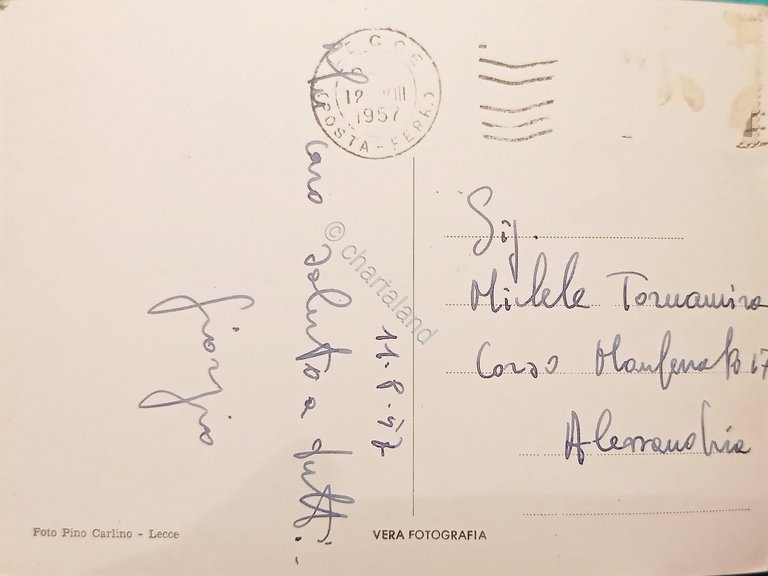 LECCE
12 VIII
1957
(POSTA-FERR.)
11.8.57
caro saluto a tutti.
Giorgio
© chartaland
Sig.
Michele Tornamira
Corso Monferrato 17
Alessandria
Foto Pino Carlino - Lecce
VERA FOTOGRAFIA